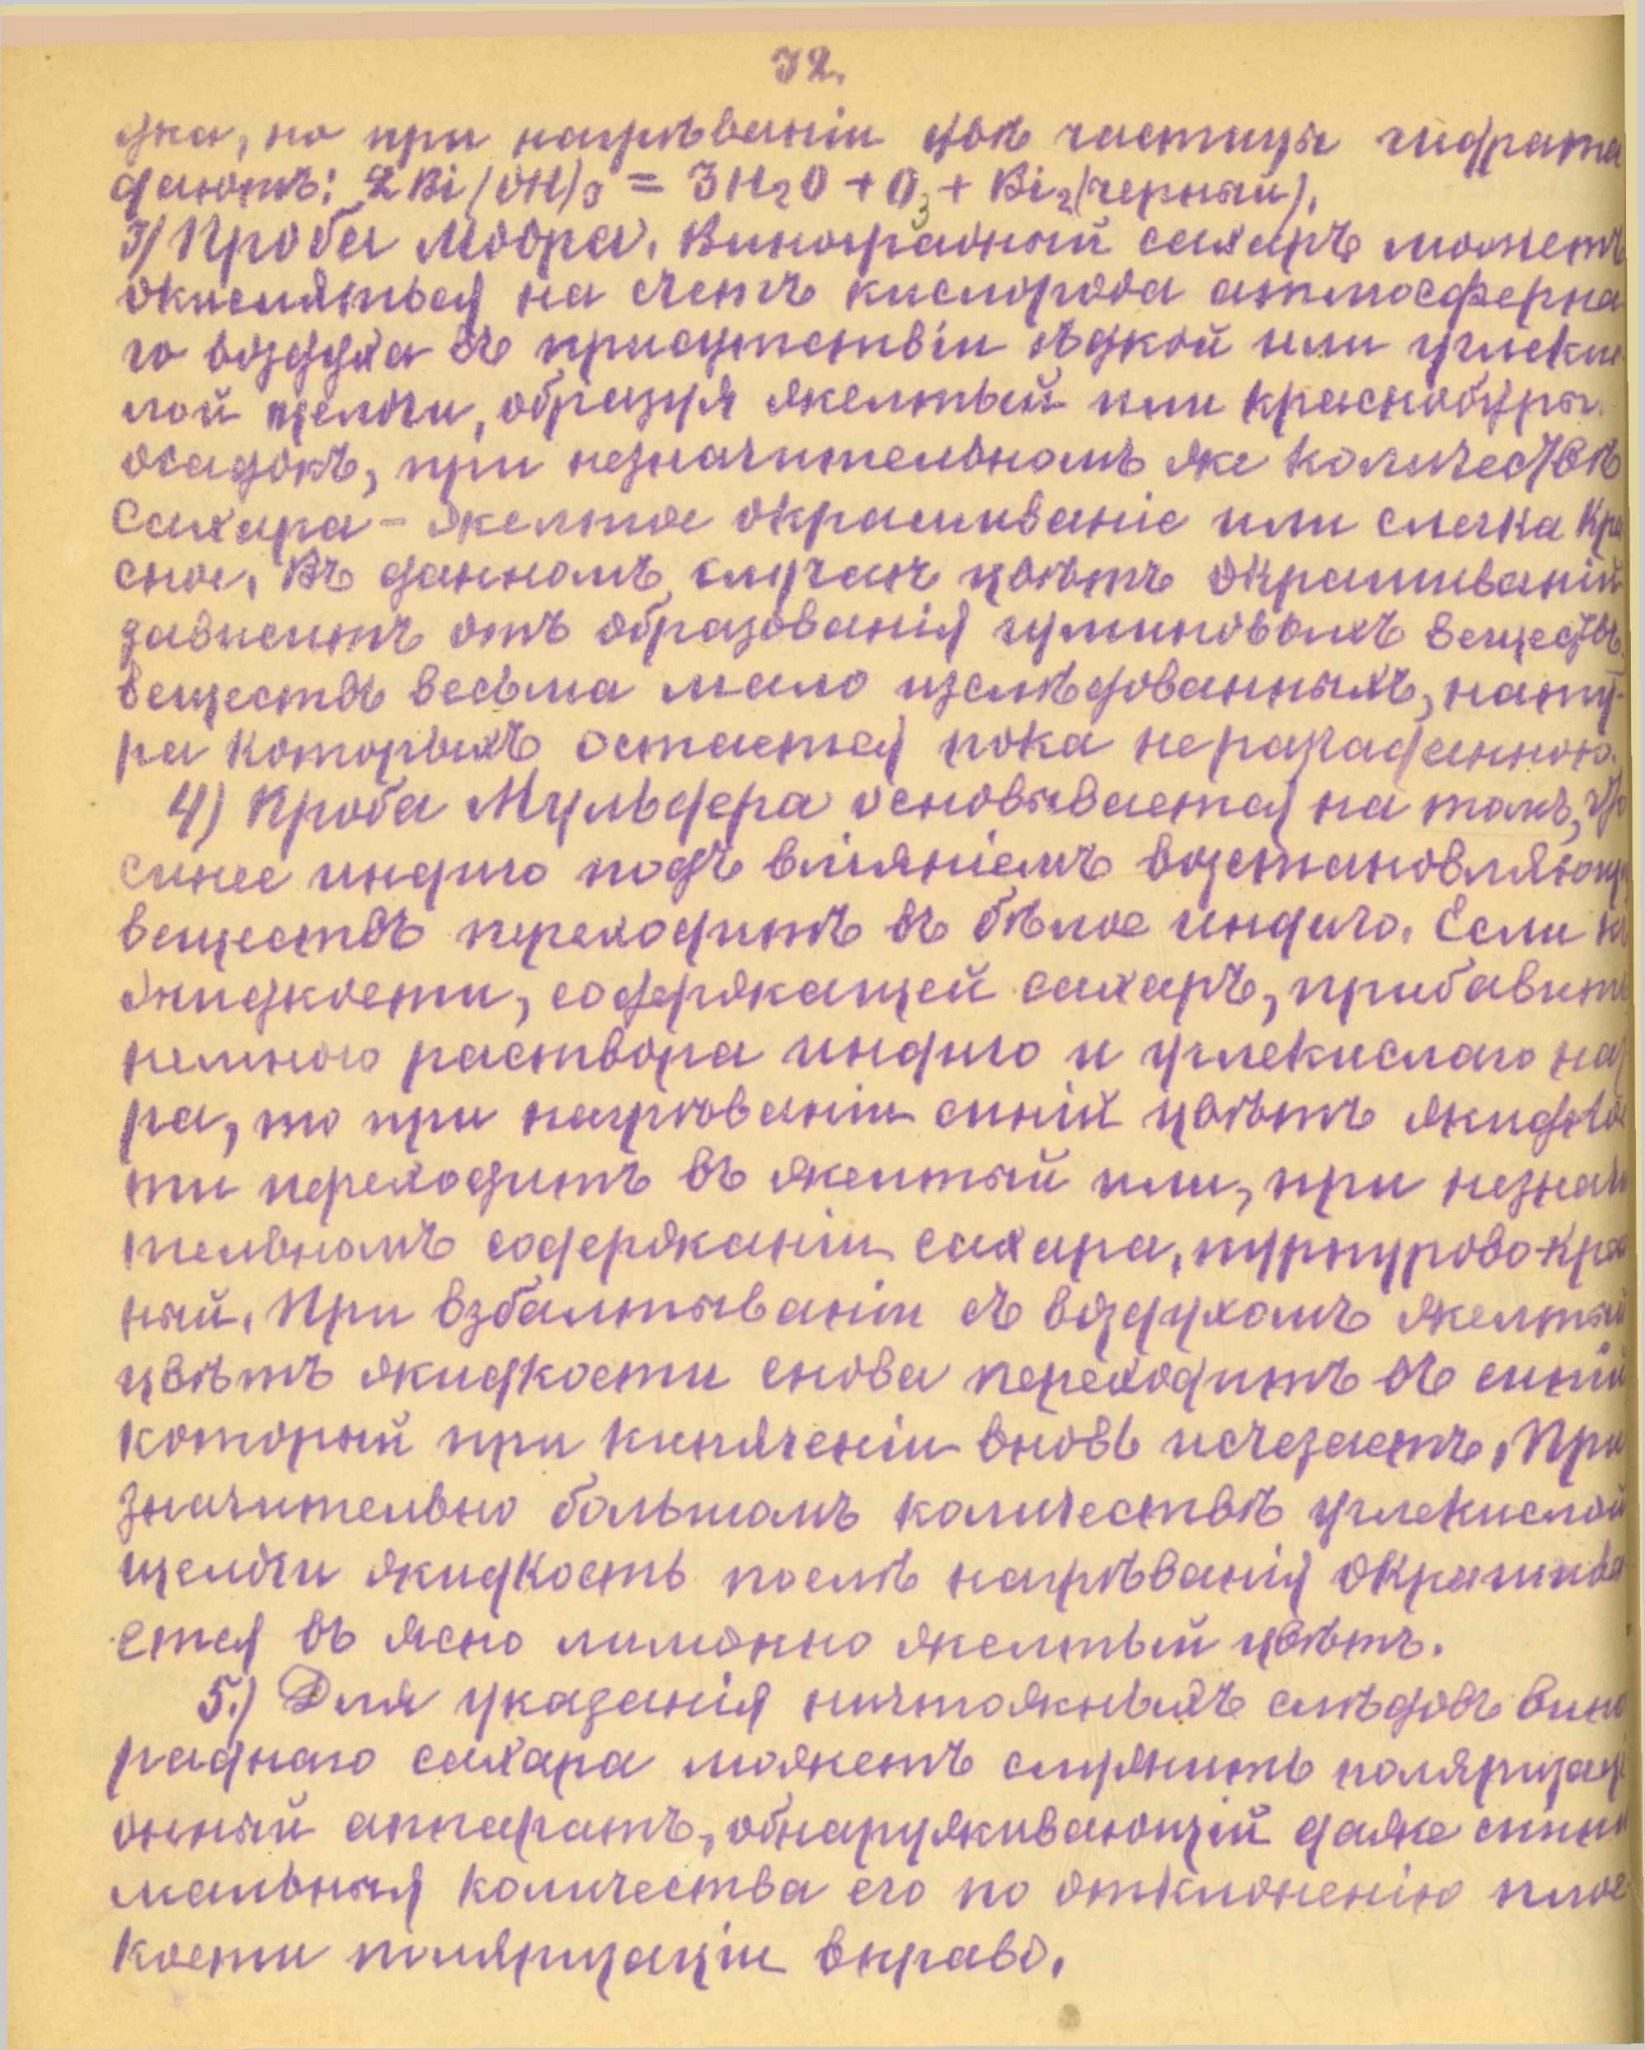 72.
дка, но при нагрѣваніи двѣ частицы гидрата
даютъ: 2Bi/OH/3 = 3H2O + O3 + Bi2(черный).
3/ Проба Моора. Виноградный сахаръ можетъ
окисляться на счетъ кислорода атмосферна
го воздуха въ присутствіи ѣдкой или углекис
лой щелочи, образуя желтый или краснобурый
осадокъ, при незначительномъ же количествѣ
сахара - желтое окрашиваніе или слегка кра
сное. Въ данномъ случаѣ цвѣтъ окрашиваній
зависитъ отъ образованія гуминовыхъ веществъ,
веществъ весьма мало изслѣдованныхъ, нату-
ра которыхъ остается пока неразгаданною.
4) Проба Мульдера основывается на томъ, что
синее индиго подъ вліяніемъ возстановляющ.
веществъ переходитъ въ бѣлое индиго. Если къ
жидкости, содержащей сахаръ, прибавить
немного раствора индиго и углекислаго нат
ра, то при нагрѣваніи синій цвѣтъ жидкос
ти переходитъ въ желтый или, при незначи
тельномъ содержаніи сахара, пурпурово-крас
ный. При взбалтываніи съ воздухомъ желтый
цвѣтъ жидкости снова переходитъ въ синій
который при кипяченіи вновь исчезаетъ. При
значительно большомъ количествѣ углекислой
щелочи жидкость послѣ нагрѣванія окрашива
ется въ ясно лимонно желтый цвѣтъ.
5.) Для указанія ничтожныхъ слѣдовъ виног
раднаго сахара можетъ служить поляризаці
онный аппаратъ, обнаруживающій даже мини
мальныя количества его по отклоненію плос
кости поляризаціи вправо.